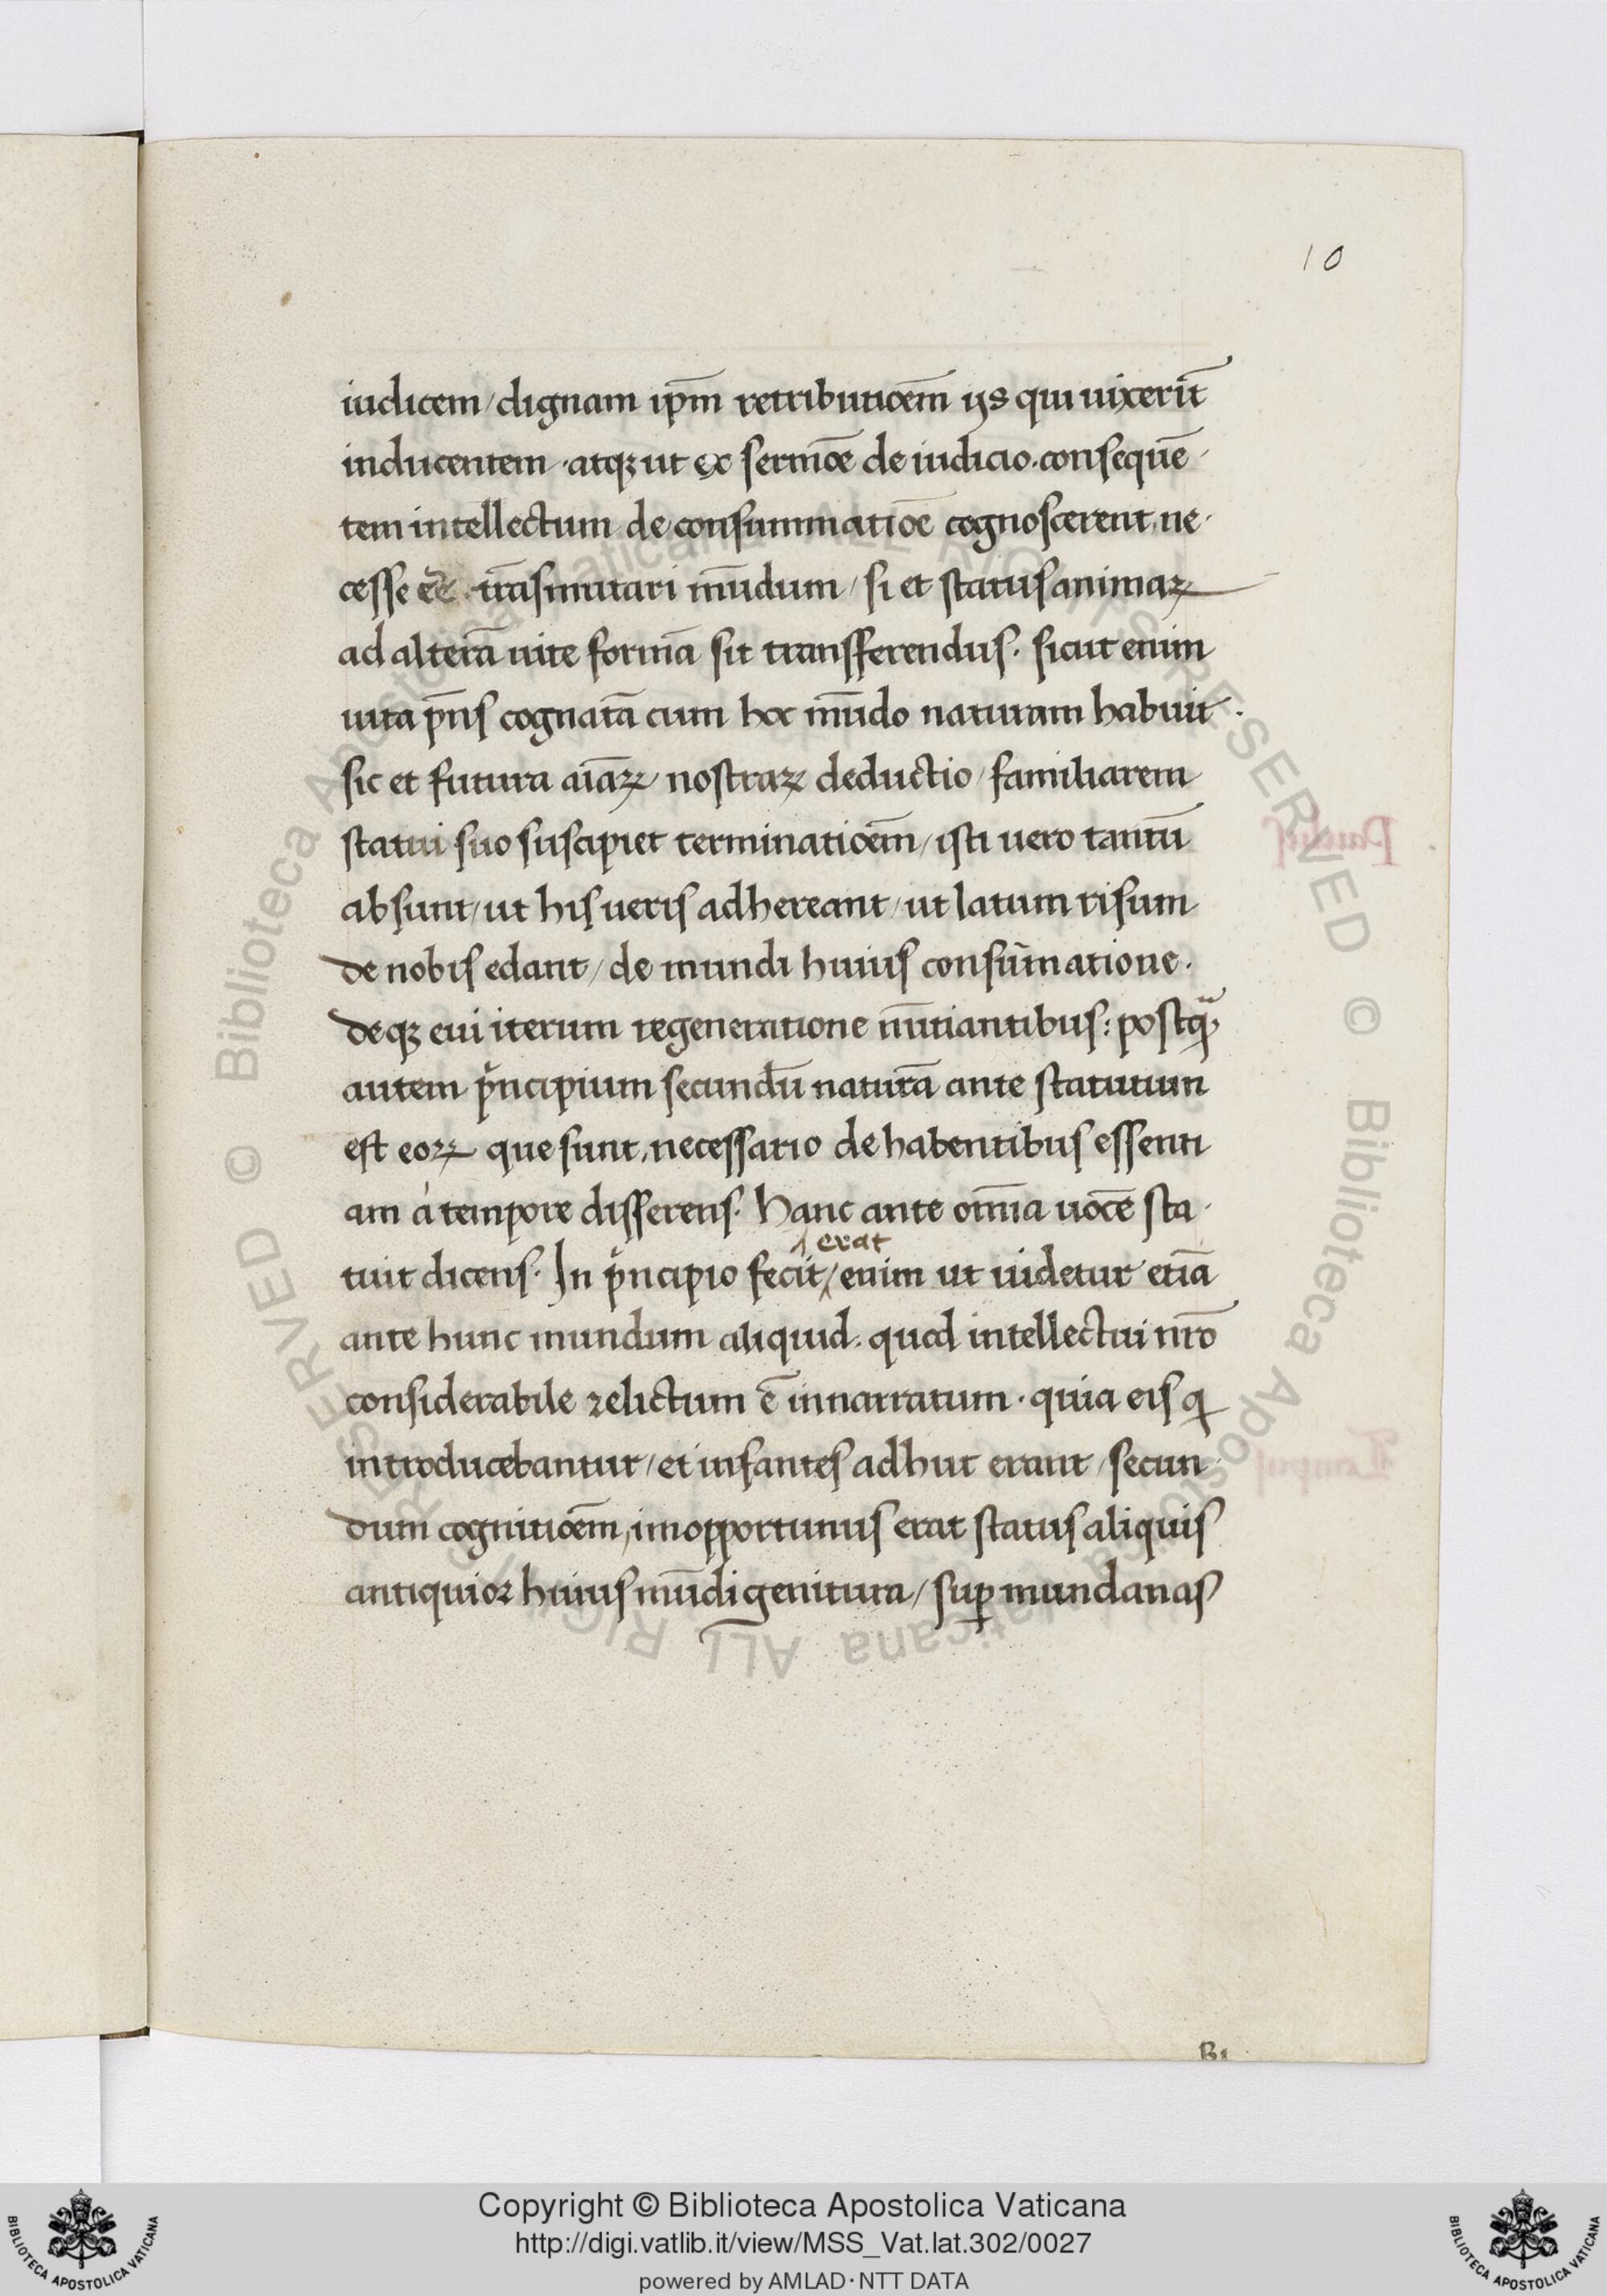 10
iudicem / dignam ip̄m retributiōem ijs qui uixerīt
inducentem · atqꝫ ut ex sermōe de iudicio · consequē
tem intellectum de consummatiōe cognoscerent, ne
cesse eē · trāsmutari mūdum / si et status animaꝝ
ad alterā uite formā sit transfferendus · sicut enim
uita p̄ns cognatā cum hoc mūdo naturam habuit ·
sic et futura aīaꝝ nostraꝝ deductio / familiarem
statui suo suscipiet terminatiōem / isti uero tantū
absunt / ut his ueris adhereant / ut latum risum
de nobis edant / de mundi huius consūmatione ·
deqꝫ eui iterum regeneratione nūtiantibus : postqᷓ
autem pͥncipium secundū naturā ante statutum
est eoꝝ que sunt, necessario de habentibus essenti
am à tempore differens · hanc ante om̄ia uocē sta
erat
tuit dicens · In pͥncipio fecit / enim ut uidetur etiā
ante hunc mundum aliquid · quod intellectui nr̄o
considerabile relictum ē innarratum · quia eis q
introducebantur / et infantes adhuc erant / secun
dum cognitiōem, imopportunus erat status aliquis
antiquior huius mūdi genitura / suꝑ mundanas
B1
Copyright © Biblioteca Apostolica Vaticana
http://digi.vatlib.it/view/MSS_Vat.lat.302/0027
powered by AMLAD·NTT DATA
BIBLIOTECA APOSTOLICA VATICANA
BIBLIOTECA APOSTOLICA VATICANA